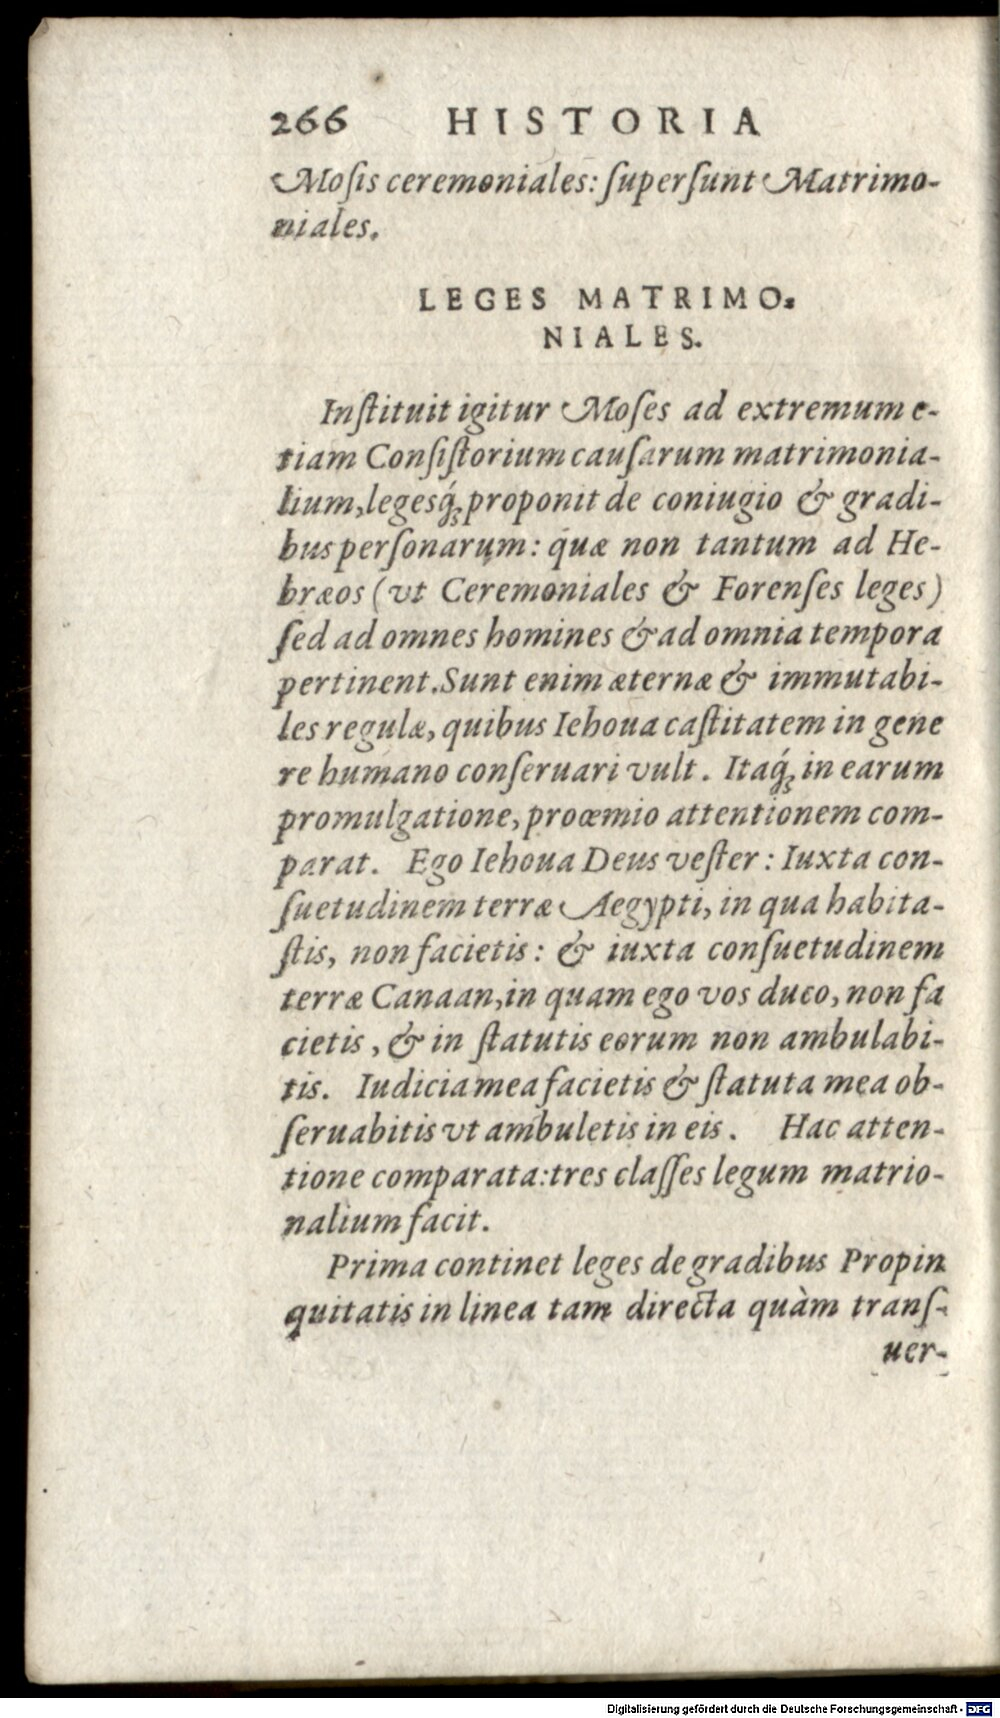 266 HISTORIA
Moſis ceremoniales: ſuperſunt Matrimo-
niales.
LEGES MATRIMO-
NIALES.
Inſtituit igitur Moſes ad extremum e-
tiam Conſiſtorium cauſarum matrimonia-
lium, legesq́; proponit de coniugio & gradi-
bus perſonarum: quæ non tantum ad He-
bræos (vt Ceremoniales & Forenſes leges)
ſed ad omnes homines & ad omnia tempora
pertinent. Sunt enim æternæ & immutabi-
les regulæ, quibus Iehoua caſtitatem in gene
re humano conſeruari vult. Itaq́; in earum
promulgatione, proœmio attentionem com-
parat. Ego Iehoua Deus veſter: Iuxta con-
ſuetudinem terræ Aegypti, in qua habita-
ſtis, non facietis: & iuxta conſuetudinem
terræ Canaan, in quam ego vos duco, non fa
cietis, & in ſtatutis eorum non ambulabi-
tis. Iudicia mea facietis & ſtatuta mea ob-
ſeruabitis vt ambuletis in eis. Hac atten-
tione comparata: tres claſſes legum matrio-
nalium facit.
Prima continet leges de gradibus Propin
quitatis in linea tam directa quàm tranſ-
uer-
Digitalisierung gefördert durch die Deutsche Forschungsgemeinschaft - DFG